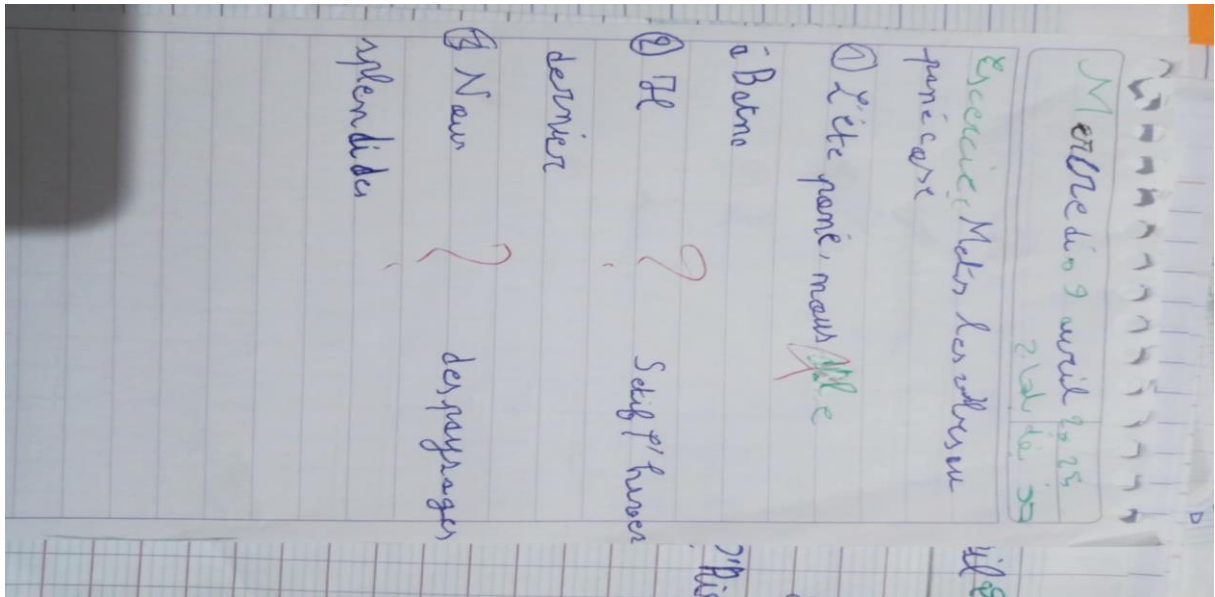 Mercredi 9 avril 2025
Exercice, Mets les verbes au
passé casé
① L'été passé, nous
à Batna
② Il Sétif l'hiver
dernier
③ Nous des paysages
splendides